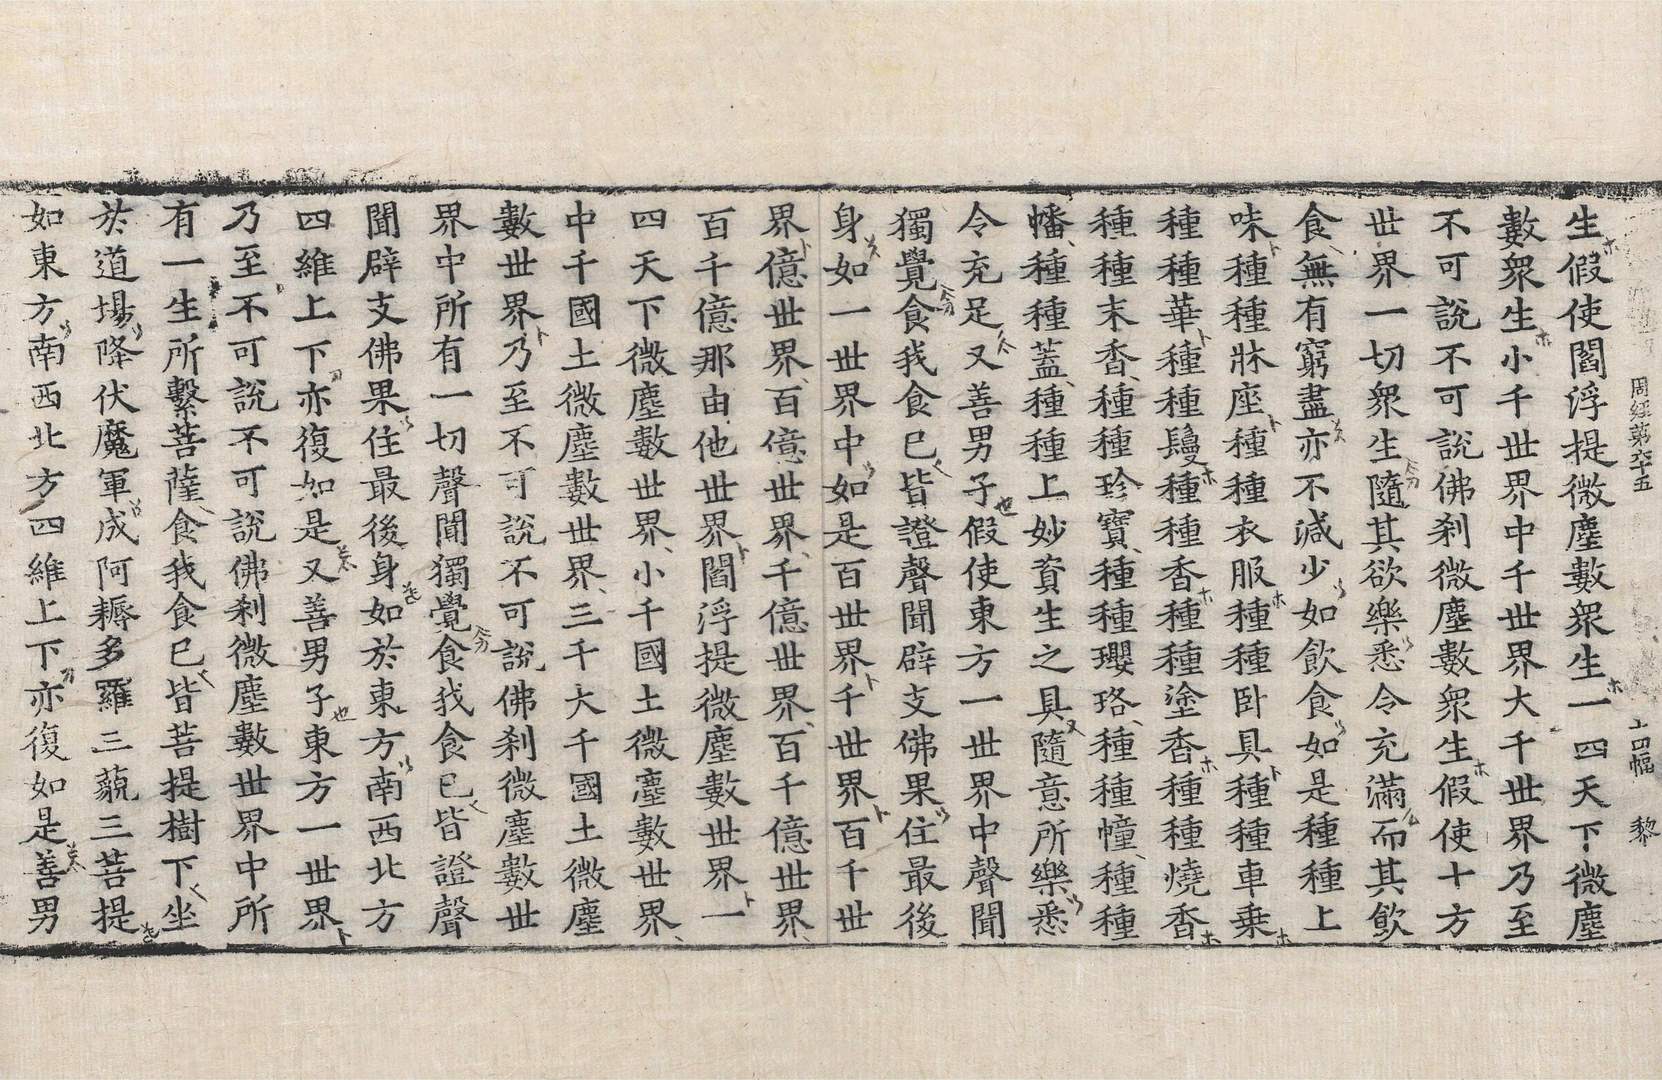 周經第六十五 十四幅 黎
生假使閻浮提微塵數衆生一四天下微塵
數衆生小千世界中千世界大千世界乃至
不可說不可說佛刹微塵數衆生假使十方
世界一切衆生隨其欲樂悉令充滿而其飮
食無有窮盡亦不減少如飮食如是種種上
味種種牀座種種衣服種種卧具種種車乗
種種華種種鬘種種香種種塗香種種燒香
種種末香種種珍寶種種瓔珞種種幢種種
幡種種蓋種種上妙資生之具隨意所樂悉
令充足又善男子假使東方一世界中聲聞
獨覺食我食已皆證聲聞辟支佛果住最後
身如一世界中如是百世界千世界百千世
界億世界百億世界千億世界百千億世界
百千億那由他世界閻浮提微塵數世界一
四天下微塵數世界小千國土微塵數世界
中千國土微塵數世界三千大千國土微塵
數世界乃至不可說不可說佛刹微塵數世
界中所有一切聲聞獨覺食我食已皆證聲
聞辟支佛果住最後身如於東方南西北方
四維上下亦復如是又善男子東方一世界
乃至不可說不可說佛刹微塵數世界中所
有一生所繫菩薩食我食已皆菩提樹下坐
於道場降伏魔軍成阿耨多羅三藐三菩提
如東方南西北方四維上下亦復如是善男